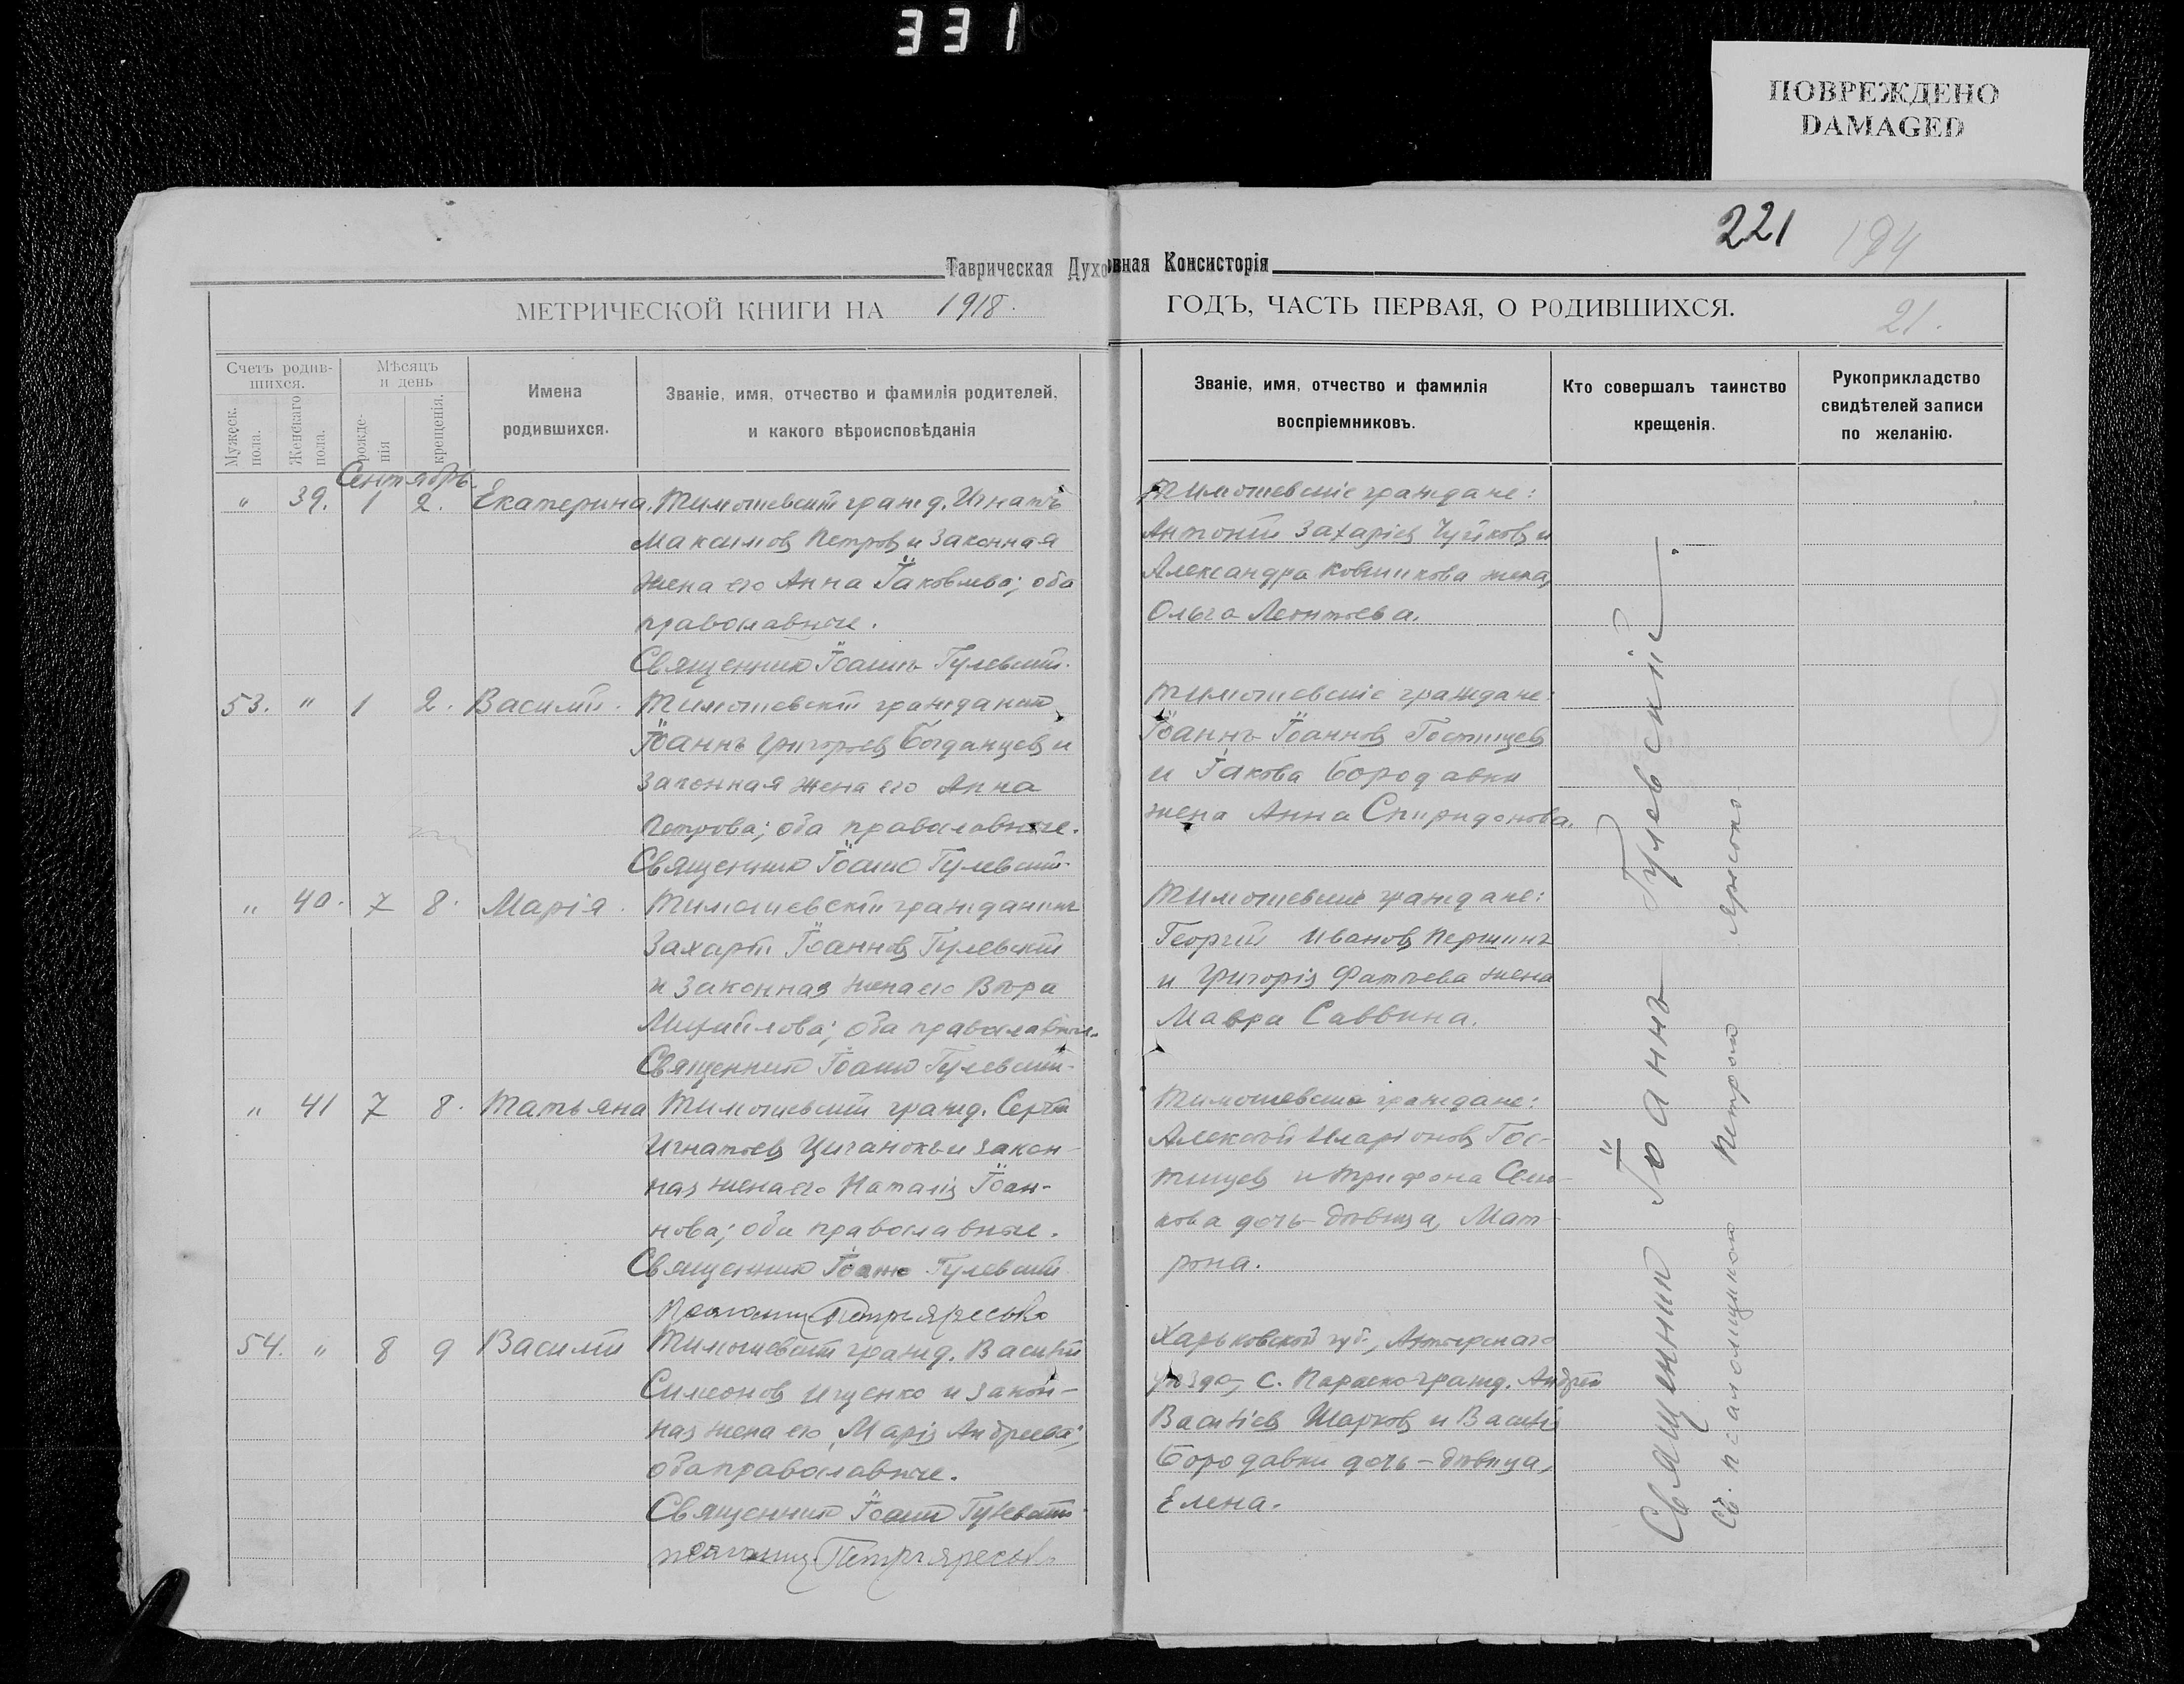 331
ПОВРЕЖДЕНО
DAMAGED
221 194
Таврическая Духовная Консисторія
МЕТРИЧЕСКОЙ КНИГИ НА 1918. ГОДЪ, ЧАСТЬ ПЕРВАЯ, О РОДИВШИХСЯ.
21.
Счетъ родив-
шихся.
Мужеск.
пола.
Женскаго
пола.
Мѣсяцъ
и день
рожде-
нія
крещенія.
Имена
родившихся.
Званіе, имя, отчество и фамилія родителей,
и какого вѣроисповѣданія
Званіе, имя, отчество и фамилія
воспріемниковъ.
Кто совершалъ таинство
крещенія.
Рукоприкладство
свидѣтелей записи
по желанію.
Сентябрь
" 39. 1 2. Екатерина. Тимошевскій гражд. Игнатъ
Максимов Петров и законная
жена его Анна Іаковлева; оба
православные.
Священник Іоаннъ Гулевскій.
Тимошевскіе граждане:
Антоній Захаріев Чуйков и
Александра жена,
Ольга Леонтьева.
53. " 1 2. Василій. Тимошевскій гражданин
Іоаннъ Григорьев Богданцев и
законная жена его Анна
Петрова; оба православные.
Священник Іоанн Гулевскій.
Тимошевскіе граждане:
Іоаннъ Іоаннов Гостищев
и Іакова Бородавки
жена Анна Спиридонова.
" 40. 7 8. Марія. Тимошевскій гражданинъ
Захарій Іоаннов Гулевскій
и законная жена его Вѣра
Михайлова; оба православные.
Священник Іоанн Гулевскій.
Тимошевскіе граждане:
Георгій Иванов Першинъ
и Григорія Фатѣева жена
Мавра Саввина.
" 41 7 8. Татьяна Тимошевскій гражд. Сергѣй
Игнатьев Циганокъ и закон-
ная жена его Наталія Іоан-
нова; оба православные.
Священник Іоанн Гулевскій
Псаломщ. Петръ Яресько
Тимошевскіе граждане:
Алексѣй Иларіонов Гос-
тищев и Трифона
дочь - дѣвица, Мат-
рона.
54. " 8 9 Василій Тимошевскій гражд. Василій
Симеонов Ищенко и закон-
ная жена его Марія Андреева;
оба православные.
Священник Іоанн Гулевскій
псаломщ. Петръ Яресько
Харьковской губ., Ахтырскаго
уѣзда, с. гражд. Андрей
Василіев Шарков и Василія
Бородавки дочь - дѣвица,
Елена.
Священник Іоаннъ Гулевскій.
Съ псаломщиком Петром Яресько.